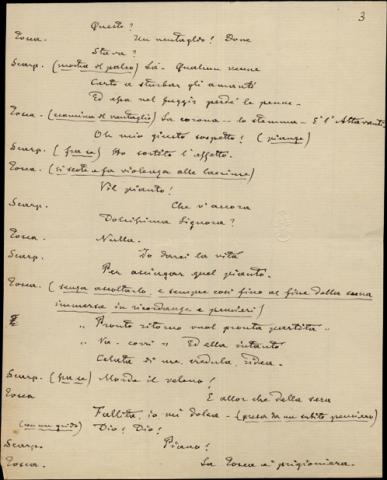 3
Questo?
Tosca. Un ventaglio! Dove
Stava?
Scarp. (mostra il palco) Là. Qualcun venne
Certo a sturbar gli amanti
Ed essa nel fuggir perdé le penne.
Tosca. (esamina il ventaglio) La corona - lo stemma - È l'Attavanti
Oh mio giusto sospetto! (piange)
Scarp. (fra se) Ho sortito l'effetto.
Tosca. (si scote e fa violenza alle lacrime)
Vil pianto!
Scarp. Che v'accora
Dolcissima Signora?
Tosca. Nulla.
Scarp. Io darei la vita
Per asciugar quel pianto.
Tosca. (senza ascoltarlo e sempre così fino al fine della scena
immersa in ricordanze e pensieri)
" Pronto ritorno vuol pronta partita "
" Va - corri " Ed ella intanto
Celata di me, credula, ridea.
Scarp. (fra se) Morde il veleno!
Tosca E allor che della sera
Fallita, io mi dolea - (presa da un subito pensiero)
(con un grido) Dio! Dio!
Scarp. Piano!
Tosca. La Tosca è prigioniera.